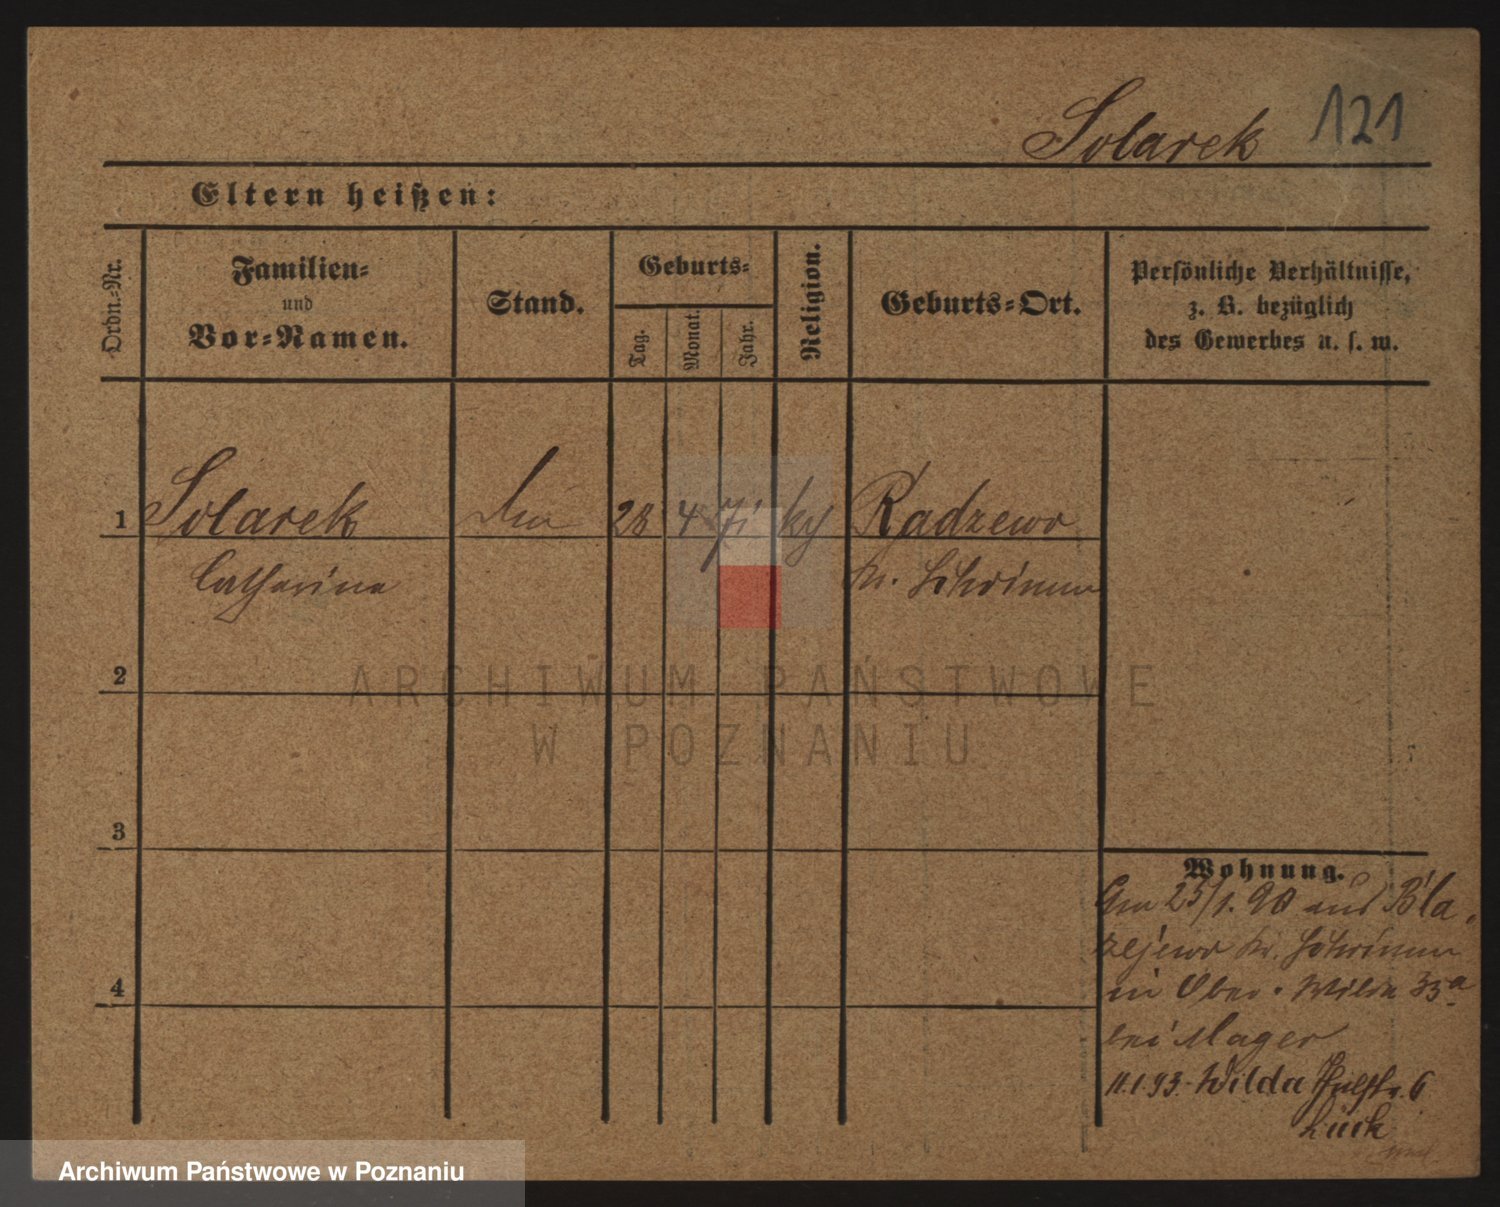 Solarek 121
Eltern heißen:
Ordn.-Nr.
Familien-
und
Vor-Namen.
Stand.
Geburts-
Tag.
Monat.
Jahr.
Religion.
Geburts-Ort.
Persönliche Verhältnisse,
z. B. bezüglich
des Gewerbes u. s. w.
1 Solarek 28 4 71 Radzewo
Catharina Kr. Schrimm
2
3
4
Wohnung.
Am 25/1. 90 aus Bla-
zejewo Kr. Schrimm
in Ober-Wilda 33a
bei Mager
11.1.93. Wilda 6
Lück
ARCHIWUM PAŃSTWOWE
W POZNANIU
Archiwum Państwowe w Poznaniu